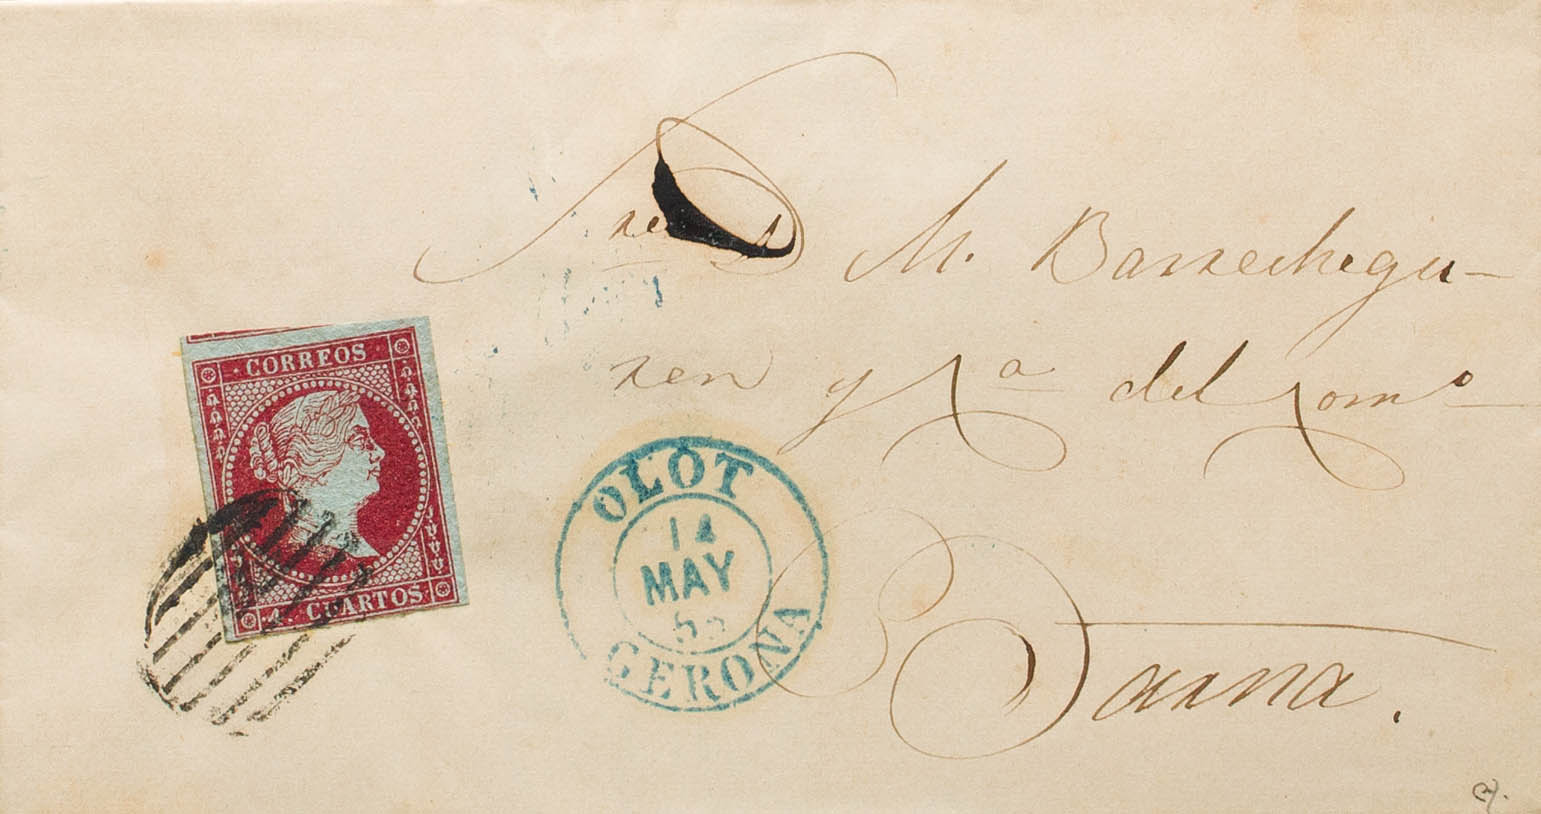 Sres D M. Barrechegu-
ren y Ca del Como
Barna.
CORREOS
4. CUARTOS
OLOT
14
MAY
GERONA